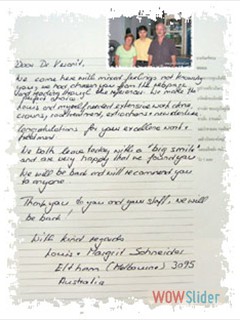 Dear Dr Vecorit,
We come here with mixed feelings not knowing
you, we had chosen you from the response
and reading through the references. We made the
perfect choice.
Louis and myself needed extensive work done,
crowns, root treatment, extractions + new dentures
Congratulations for your excellent work +
treatment
We both leave today with a "big smile"
and are very happy that we found you
We will be back and will recommend you
to anyone
Thank you to you and your staff, we will
be back!
With kind regards
Louis + Margrit Schneider
Eltham (Melbourne) 3095
Australia
WOWSlider